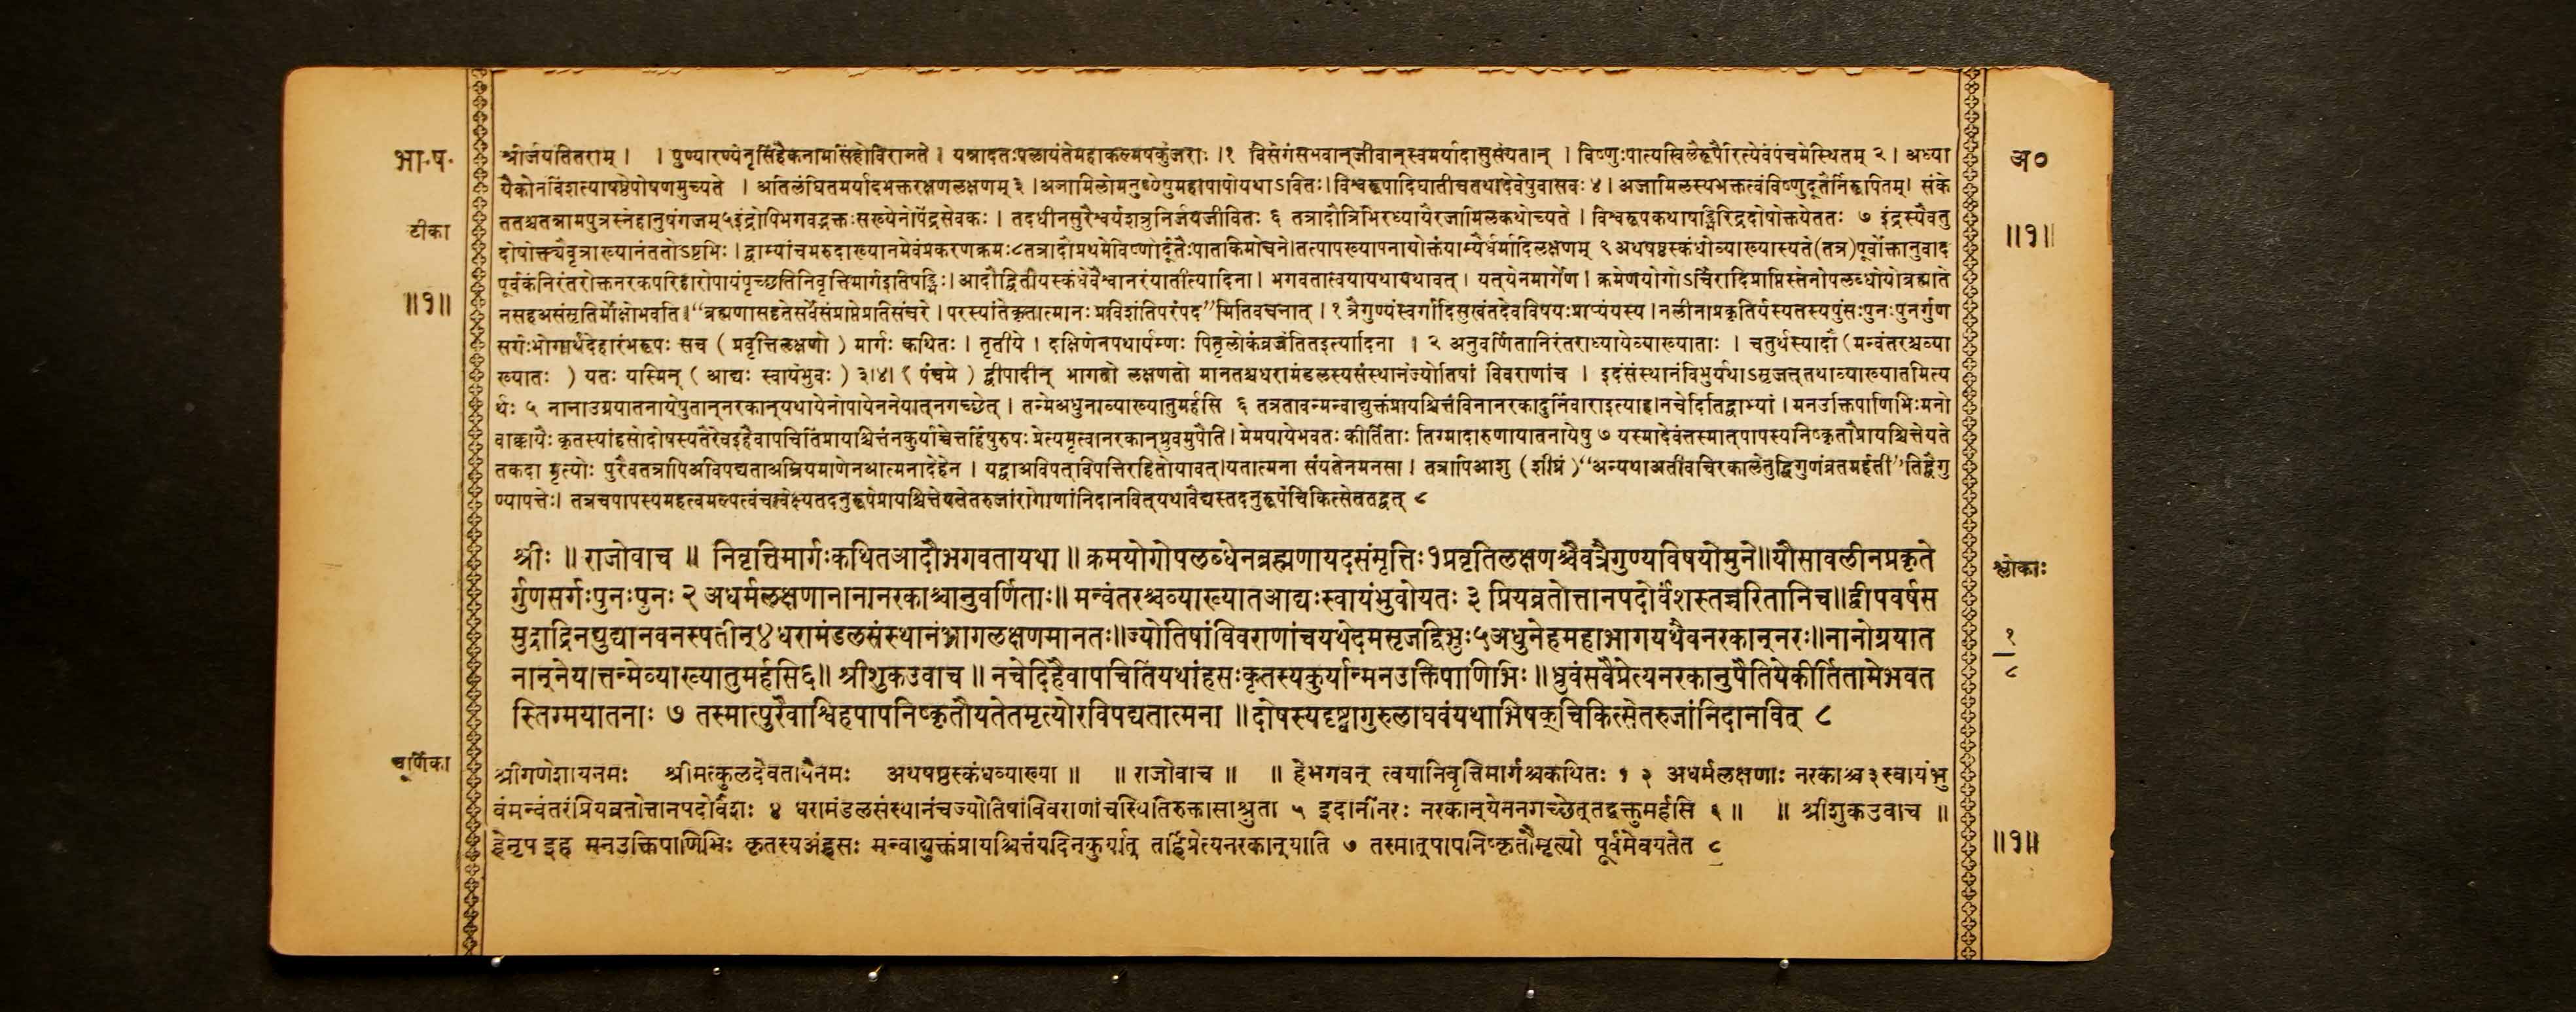 भा.ष.
अ०
श्रीर्जयतितराम् । । पुण्यारण्येनृसिंहैकनामसिंहोविराजते । यन्नादतःपलायंतेमहाकल्मषकुंजराः ।१ विसर्गसंभवान्जीवान्स्वमर्यादासुसंयतान् । विष्णुःपात्यखिलैरूपैरित्येवंपंचमेस्थितम् २। अध्या
यैकोनविंशत्याषष्ठेपोषणमुच्यते । अतिलंघितमर्यादभक्तरक्षणलक्षणम् ३ ।अजामिलोमनुष्येषुमहापापोयथाऽवितः। विश्वरूपादिघातीचतथादेवेषुवासवः ४। अजामिलस्यभक्तत्वंविष्णुदूतैर्निरूपितम्। संके
टीका
ततश्चतन्नामपुत्रस्नेहानुषंगजम्५इंद्रोपिभगवद्भक्तःसख्येनोपेंद्रसेवकः । तदधीनसुरैश्वर्यशत्रुनिर्जयजीवितः ६ तत्रादौत्रिभिरध्यायैरजामिलकथोच्यते । विश्वरूपकथाषड्भिरिंद्रदोषोक्तयेततः ७ इंद्रस्यैवतु
॥१॥
दोषोक्त्यैवृत्राख्यानंततोऽष्टभिः । द्वाभ्यांचमरुदाख्यानमेवंप्रकरणक्रमः८तत्रादौप्रथमेविष्णोर्दूतैःपातकिमोचने।तत्पापख्यापनायोक्तंयाम्यैर्धर्मादिलक्षणम् ९ अथषष्ठस्कंधोव्याख्यास्यते(तत्र)पूर्वोक्तानुवाद
पूर्वकंनिरंतरोक्तनरकपरिहारोपायंपृच्छतिनिवृत्तिमार्गइतिषड्भिः। आदौद्वितीयस्कंधेवैश्वानरंयातीत्यादिना। भगवतात्वयायथायथावत् । यत्येनमार्गेण । क्रमेणयोगोऽर्चिरादिप्राप्तिस्तेनोपलब्धोयोब्रह्माते
॥१॥
नसहअसंसृतिर्मोक्षोभवति।“ब्रह्मणासहतेसर्वेसंप्राप्तेप्रतिसंचरे । परस्यांतेकृतात्मानः प्रविशंतिपरंपद”मितिवचनात् ।१ त्रैगुण्यंस्वर्गादिसुखंतदेवविषयःप्राप्यंयस्य ।नलीनाप्रकृतिर्यस्यतस्यपुंसःपुनःपुनर्गुण
सर्गःभोगार्थंदेहारंभरूपः सच ( प्रवृत्तिलक्षणो ) मार्गः कथितः । तृतीये । दक्षिणेनपथार्यम्णः पितृलोकंव्रजंतितइत्यादिना । २ अनुवर्णितानिरंतराध्यायेव्याख्याताः । चतुर्थस्यादौ (मन्वंतरश्चव्या
ख्यातः ) यतः यास्मिन् ( आद्यः स्वायंभुवः ) ३।४। ( पंचमे ) द्वीपादीन् भागतो लक्षणतो मानतश्चधरामंडलस्यसंस्थानंज्योतिषां विवराणांच । इदंसंस्थानंविभुर्यथाऽसृजत्तथाव्याख्यातमित्य
र्थः ५ नानाउग्रयातनायेषुतान्नरकान्यथायेनोपायेननेयात्नगच्छेत् । तन्मेअधुनाव्याख्यातुमर्हसि ६ तत्रतावन्मन्वाद्युक्तंप्रायश्चित्तंविनानरकादुर्निवाराइत्याह।नचेदितिद्वाभ्यां । मनउक्तिपाणिभिःमनो
वाक्कायैः कृतस्यांहसोदोषस्यतैरेवइहैवापचितिंप्रायश्चित्तंनकुर्याच्चेत्तर्हिपुरुषः प्रेत्यमृत्वानरकान्ध्रुवमुपैति। मेमयायेभवतः कीर्तिताः तिग्मादारुणायातनायेषु ७ यस्मादेवंतस्मात्पापस्यनिष्कृतौप्रायश्चित्तेयते
तकदा मृत्योः पुरैवतत्रापिअविपद्यताअम्रियमाणेनआत्मनादेहेन । यद्वाअविपत्विपत्तिरहितोयावत्।यतात्मना संयतेनमनसा । तत्रापिआशु (शीघ्रं )“अन्यथाअतीवचिरकालेतुद्विगुणंव्रतमर्हती”तिद्वैगु
ण्यापत्तेः। तत्रचपापस्यमहत्वमल्पत्वंचावेक्ष्यतदनुरूपेप्रायश्चित्तेयतेतरुजांरोगाणांनिदानवित्यथावैद्यस्तदनुरूपंचिकित्सेततद्वत् ८
श्रीः ॥ राजोवाच ॥ निवृत्तिमार्गःकथितआदौभगवतायथा ॥ क्रमयोगोपलब्धेनब्रह्मणायदसंमृत्तिः१प्रवृतिलक्षणश्चैवत्रैगुण्यविषयोमुने॥यौसावलीनप्रकृते
श्लोकाः
र्गुणसर्गःपुनःपुनः २ अधर्मलक्षणानानानरकाश्चानुवर्णिताः॥ मन्वंतरश्चव्याख्यातआद्यःस्वायंभुवोयतः ३ प्रियव्रतोत्तानपदोर्वंशस्तच्चरितानिच॥द्वीपवर्षस
मुद्राद्रिनद्युद्यानवनस्पतीन्४धरामंडलसंस्थानंभागलक्षणमानतः॥ज्योतिषांविवराणांचयथेदमसृजद्विभुः५अधुनेहमहाभागयथैवनरकान्नरः॥नानोग्रयात
१
८
नान्नेयात्तन्मेव्याख्यातुमर्हसि६॥ श्रीशुकउवाच ॥ नचेदिहैवापचितिंयथांहसःकृतस्यकुर्यान्मनउक्तिपाणिभिः ॥ध्रुवंसवैप्रेत्यनरकानुपैतियेकीर्तितामेभवत
स्तिग्मयातनाः ७ तस्मात्पुरैवाश्विहपापनिष्कृतौयतेतमृत्योरविपद्यतात्मना ॥दोषस्यदृष्ट्वागुरुलाघवंयथाभिषक्चिकित्सेतरुजांनिदानवित् ८
चूर्णिका
श्रीगणेशायनमः श्रीमत्कुलदेवतायैनमः अथषष्ठस्कंधव्याख्या ॥ ॥ राजोवाच ॥ ॥ हेभगवन् त्वयानिवृत्तिमार्गश्चकथितः १ २ अधर्मलक्षणाः नरकाश्च३स्वायंभु
वंमन्वंतरंप्रियव्रतोत्तानपदोर्वंशः ४ धरामंडलसंस्थानंचज्योतिषांविवराणांचस्थितिरुक्तासाश्रुता ५ इदानींनरः नरकान्येननगच्छेत्तद्वक्तुमर्हसि ६ ॥ ॥ श्रीशुकउवाच ॥
हेनृप इह मनउक्तिपाणिभिः कृतस्यअंहसः मन्वाद्युक्तंप्रायश्चित्तंयदिनकुर्यात् तर्हिप्रेत्यनरकान्याति ७ तस्मात्पापनिष्कृतौमृत्यो पूर्वमेवयतेत ८
॥१॥